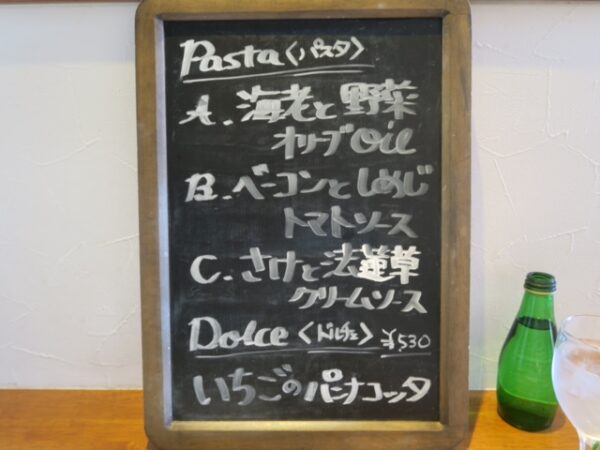 Pasta〈パスタ〉
A. 海老と野菜
オリーブoil
B. ベーコンとしめじ
トマトソース
C. さけと法蓮草
クリームソース
Dolce〈ドルチェ〉¥530
いちごのパンナコッタ